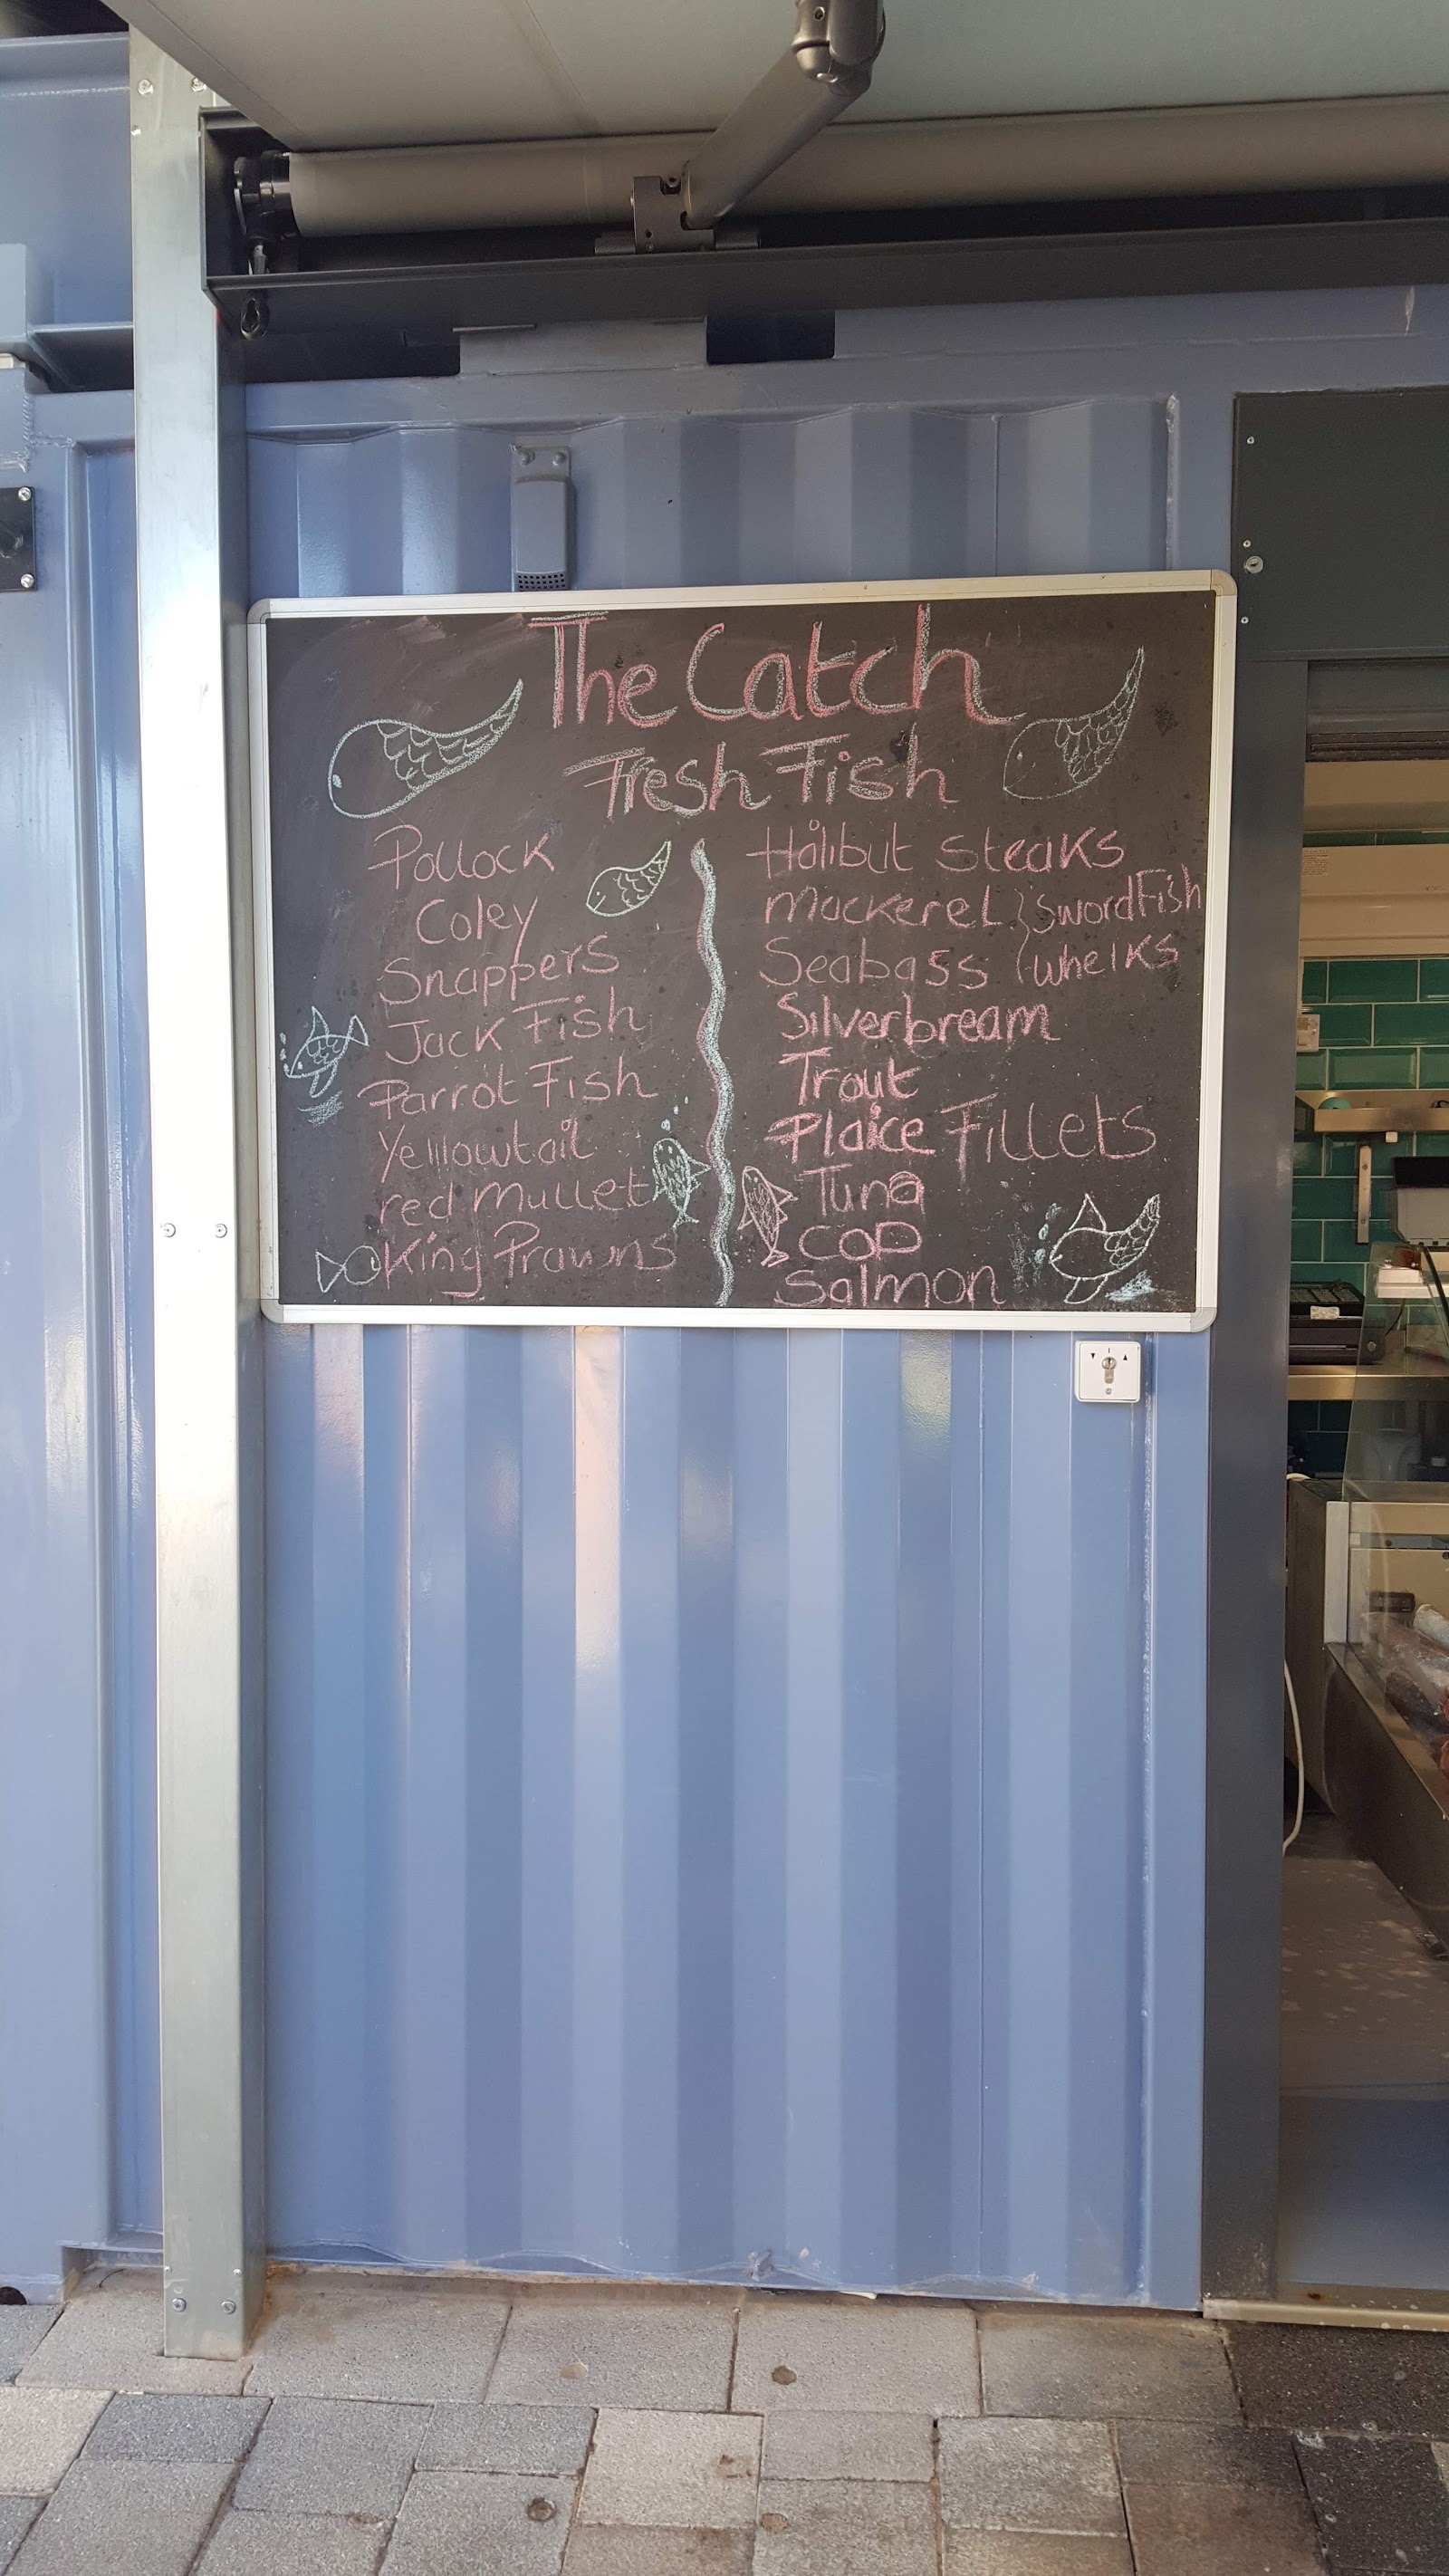 The Catch
Fresh Fish
Pollock
Coley
Snappers
Jack Fish
Parrot Fish
Yelllowtail
red mullet
King Prawns
Halibut steaks
mackerel
swordFish
Seabass
whelks
Silverbream
Trout
Plaice Fillets
Tuna
COD
Salmon